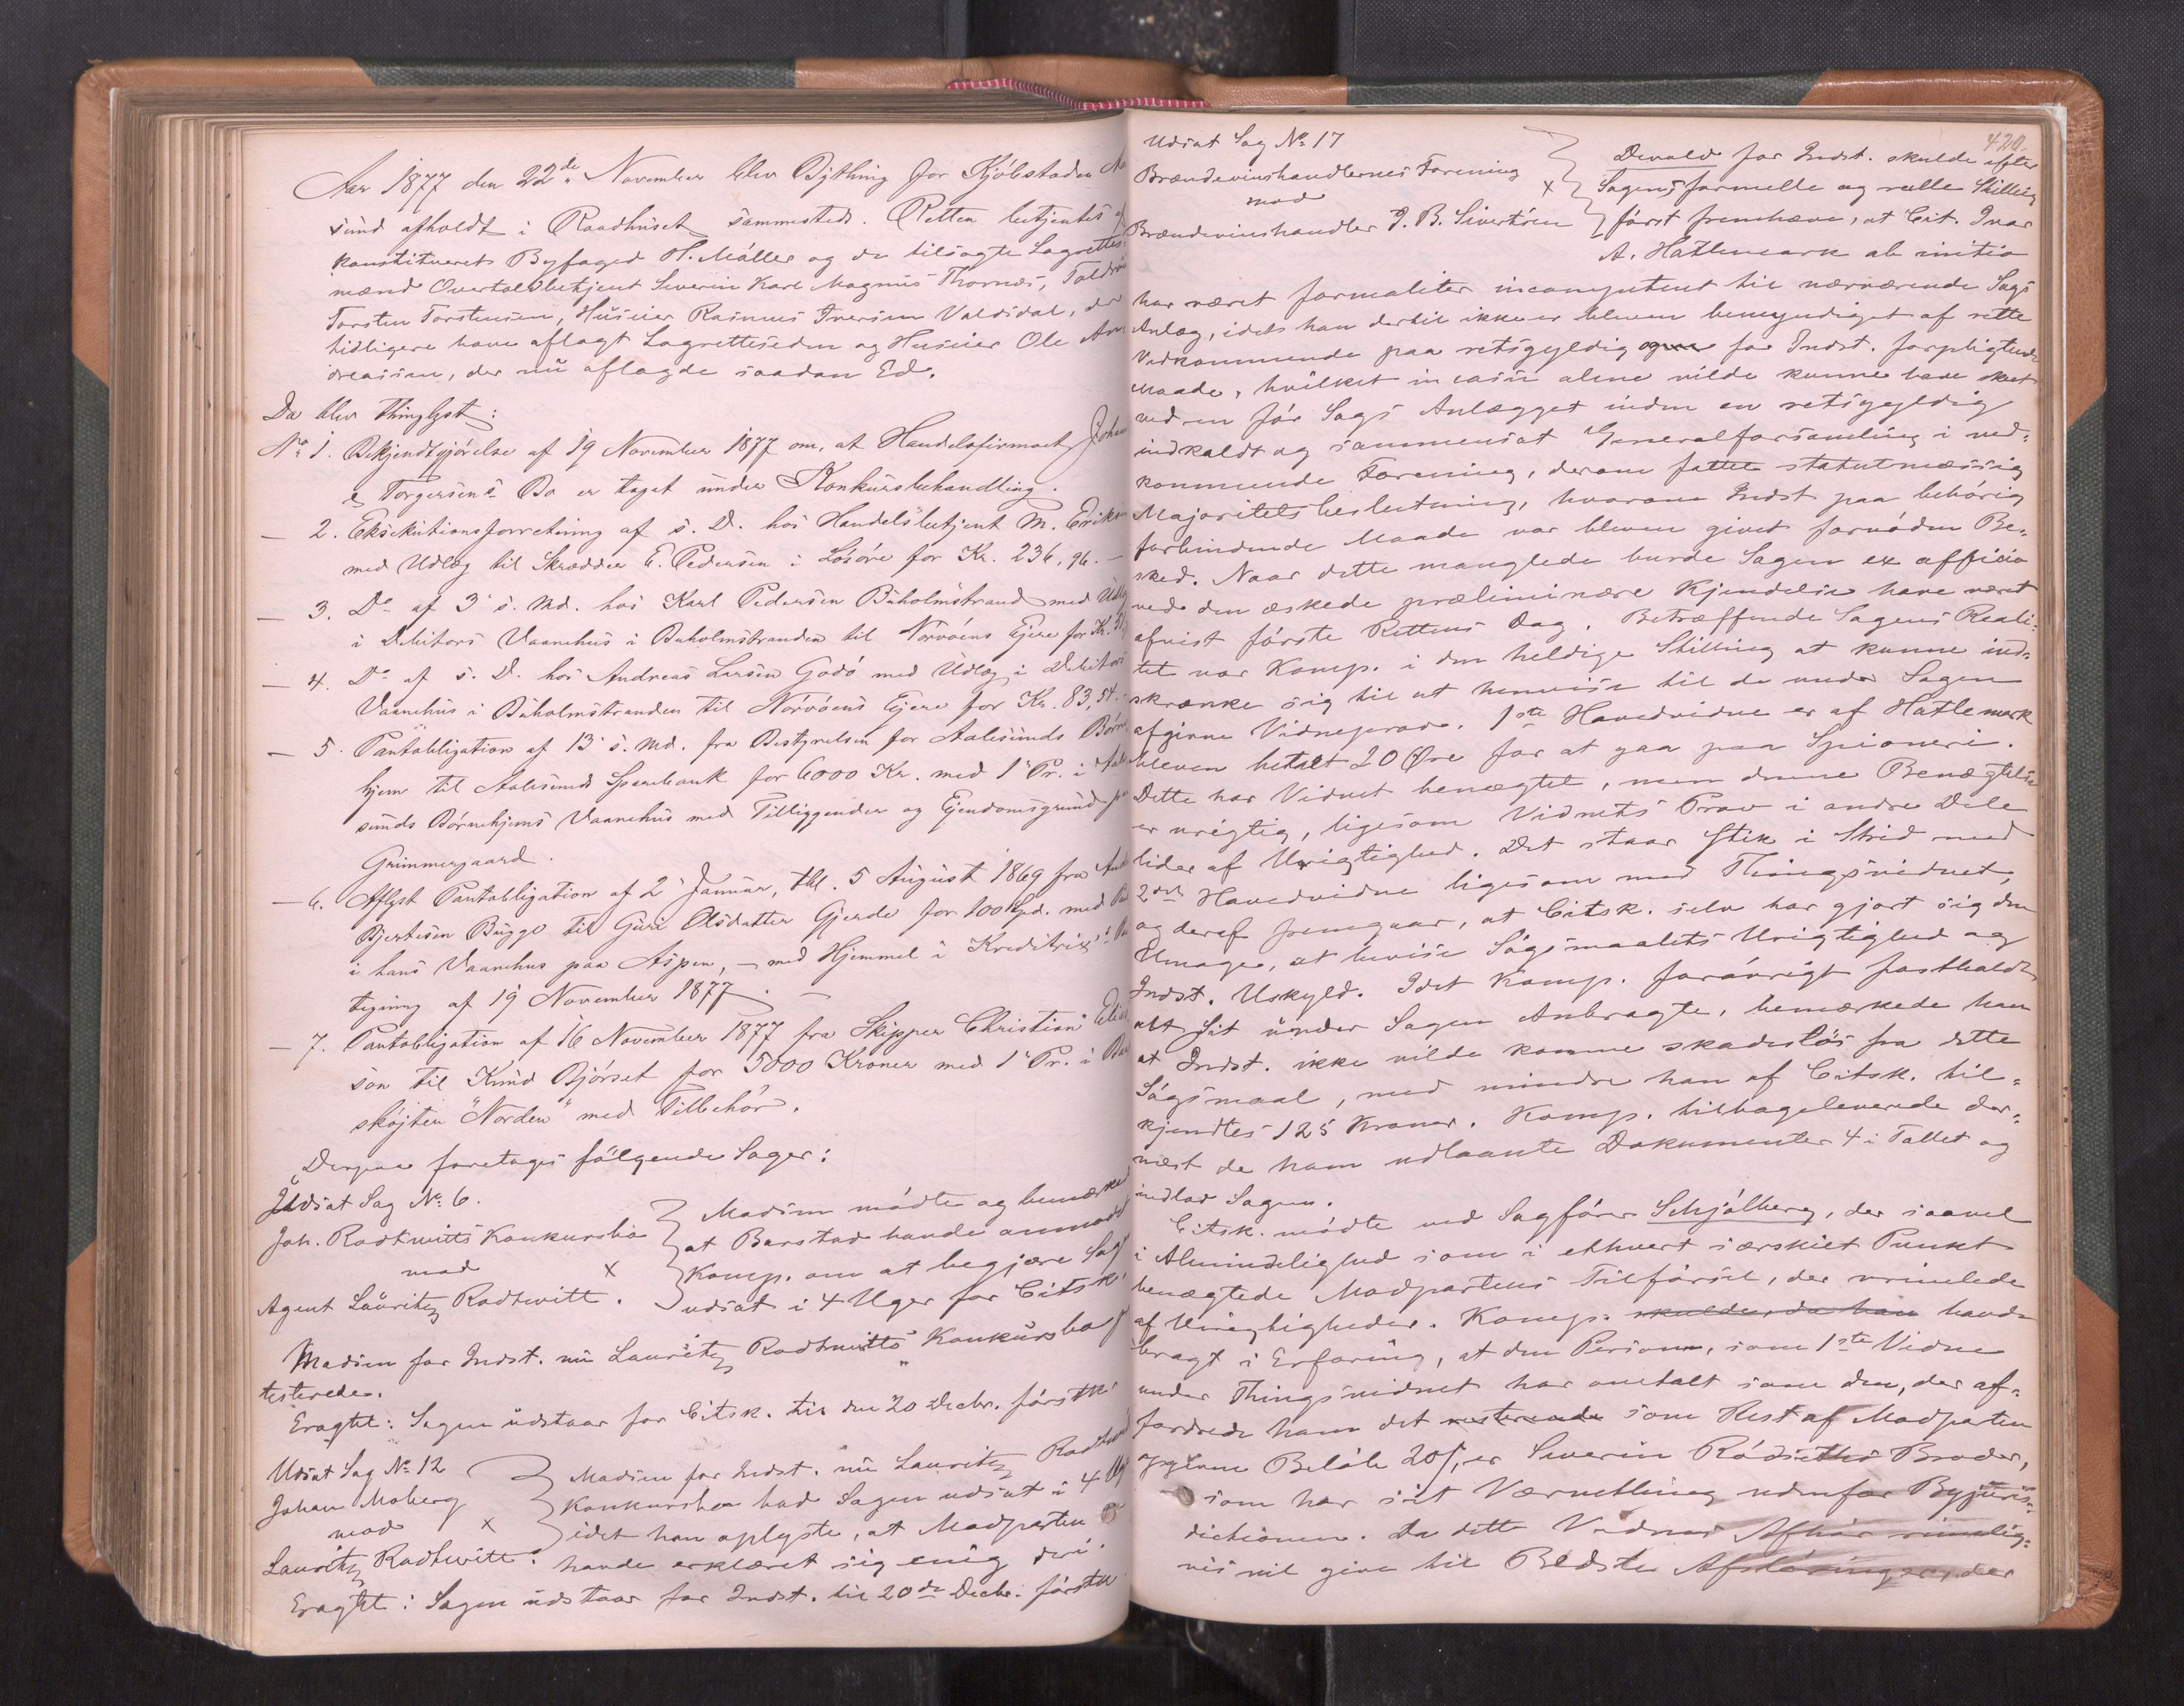 Aar 1877 den 22de November blev Bything for Kjöbstaden Aa
sund afholdt i Raadhuset sammesteds. Retten betjentes af
konstitueret Byfoged H. Möller og de tilsagte Lagrettes-
mænd Overtoldbetjent Severin Karl Magnus Thornæs, Toldrör
Torsten Torstensen, Huseier Rasmus Iversen Valdsdal, der
tidligere have aflagt Lagretteseden og Huseier Ole An
dreassen, der nu aflagde saadan Ed.
Da blev thinglyst:
No 1. Bekjendtgjörelse af 19 November 1877 om, at Handelsfirmaet Johan
& Torgersens Bo er taget under Konkursbehandling.
— 2. Eksekutionsforretning af s. D. hos Handelsbetjent M. Erikse
med Udlæg til Skrædder E. Pedersen i Lösöre for Kr. 236,96. —
— 3. Do af 3 s. Md. hos Karl Pedersen Buholmstrand med Udlæg
i Debitors Vaanehus i Buholmstranden til Nörvöens Ejere for Kr.
— 4. Do af s. D. hos Andreas Larsen Godö med Udlæg i Debitors
Vaanehus i Buholmstranden til Nörvöens Ejere for Kr. 83,54.
— 5. Pantobligation af 13 s. Md. fra Bestyrelsen for Aalesunds Börne
hjem til Aalesunds Sparebank for 6000 Kr. med 1 Pr. i Aale
sunds Börnehjems Vaanehus med Tilliggender og Ejendomsgrund paa
Grimmergaard.
— 6. Aflyst Pantobligation af 2 Januar, thl. 5 August 1869 fra And
Bjertesen Bugge til Guri Olsdatter Gjerde for 100 Spd. med Pa
i hans Vaanehus paa Aspen, — med Hjemmel i Kreditrix's
tegning af 19 November 1877. —
— 7. Pantobligation af 16 November 1877 fra Skipper Christian Elia
sen til Knud Björset for 5000 Kroner med 1 Pr. i Dæ
sköjten "Norden" med Tilbehör.
Derpaa foretoges fölgende Sager:
Udsat Sag No 6.
Joh. Rodtwitts Konkursbo
mod ×
Agent Lauritz Rodtwitt.
Madsen mödte og bemærked
at Barstad havde anmodet
Komp. om at begjære Sag
udsat i 4 Uger for Citsk.
Madsen for Indst. nu Lauritz Rodtwitts Konkursbo
testerede.
Eragtet: Sagen udstaar for Citsk. til den 20 Decbr. förstk.
Udsat Sag No 12
Johan Moberg
mod ×
Lauritz Rodtwitt.
Madsen for Indst. nu Lauritz Rodtwi
Konkursbo bad Sagen udsat i 4 Ug
idet han oplyste, at Modparten
havde erklæret sig enig deri.
Eragtet: Sagen udstaar for Indst. til 20de Decbr. förstk.
420.
Udsat Sag No 17
Brændevinshandlernes Forening
mod ×
Brændevinshandler J. B. Sivertsen
Devold for Indst. skulde efter
Sagens formelle og reelle Stilling
först fremhæve, at Cit. Ivar
A. Hatlemark ab initio
har været formaliter incompetent til nærværende Sags
Anlæg, idet han dertil ikke er bleven bemyndiget af rette
Vedkommende paa retsgyldig for Indst. forpligtende
Maade, hvilket in casu alene vilde kunne have skeet
ved en för Sags Anlægget inden en retsgyldig
indkaldt og sammensat Generalforsamling i ved-
kommende Forening, derom fattet statutmæssig
Majoritetsbeslutning, hvorom Indst paa behörig
forbindende Maade var bleven givet fornöden Be-
sked. Naar dette manglede burde Sagen ex officio
ved den æskede præliminære Kjendelse have været
afvist förste Rettens Dag. Betræffende Sagens Reali-
tet var Komp. i den heldige Stilling at kunne ind-
skrænke sig til at henvise til de under Sagen
afgivne Vidneprov. 1ste Hovedvidne er af Hatlemark
bleven betalt 20 Øre for at gaa paa Spioneri.
Dette har Vidnet benægtet, men denne Benægtelse
er urigtig, ligesom Vidnets Prov i andre Dele
lider af Urigtighed. Det staar stik i Strid med
2det Hovedvidne ligesom med Thingsvidnet,
og deraf fremgaar, at Citsk. selv har gjort sig den
Umage, at bevise Sögsmaalets Urigtighed og
Indst. Uskyld. Idet Komp. forövrigt fastholdt
alt sit under Sagen Anbragte, bemærkede han
at Indst. ikke vilde komme skadeslös fra dette
Sögsmaal, med mindre han af Citsk. til-
kjendtes 125 Kroner. Komp. tilbageleverede der-
næst de ham udlaante Dokumenter 4 i Tallet og
indlod Sagen.
Citsk. mödte ved Sagförer Schjölberg, der saavel
i Almindelighed som i ethvert særskilt Punkt
benægtede Modpartens Tilförsel, der vrimlede
af Urigtigheder. Komp. skulde, da han havde
bragt i Erfaring, at den Person, som 1ste Vidne
under Thingsvidnet har omtalt som den, der af-
fordrede ham det resterende som Rest af Modparten
opgivne Belöb 20 ß, er Severin Rödseths Broder,
som har sit Værnething udenfor Byjuris-
dictionen. Da dette Vidnes Afhör rimelig-
vis vil give til Bedste Afslöringer, der